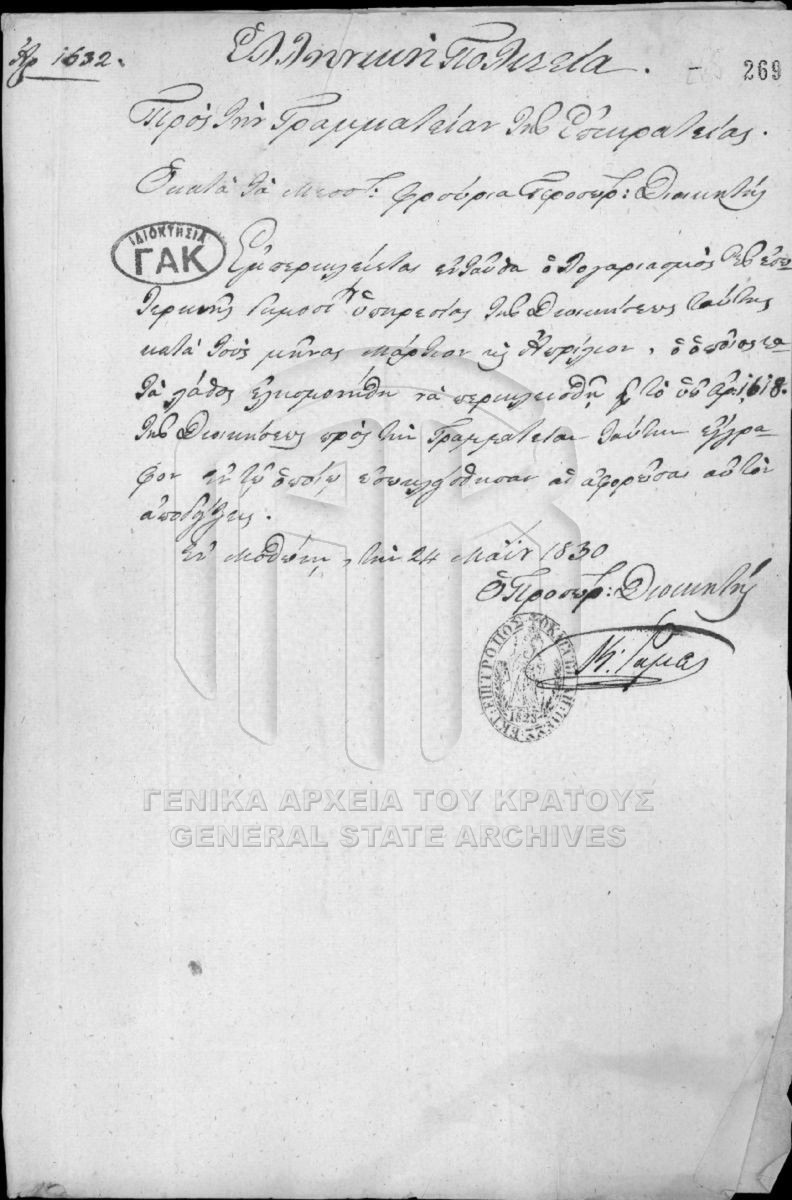 Ἀρ 1632.
Ἑλληνικὴ Πολιτεία.
269
Πρὸς τὴν Γραμματείαν τῆς Ἐπικρατείας.
Ὁ κατὰ τὰ Μεσσ: φρούρια Προσωρ: Διοικητής
ΙΔΙΟΚΤΗΣΙΑ
ΓΑΚ
Ἐμπερικλείεται ἐνταῦθα ὁ λογαριασμὸς τῆς ἐσω
τερικῆς ὑπηρεσίας τῆς Διοικήσεως ταύτης
κατὰ τοὺς μῆνας Μάρτιον καὶ Ἀπρίλιον, ὁ ὁποῖος κα
τὰ λάθος ἐλησμονήθη νὰ περικλεισθῇ εἰς τὸ ὑπ' ἀρ: 1618.
τῆς Διοικήσεως πρὸς τὴν Γραμματείαν ταύτην ἔγγρα-
φον ἐν τῷ ὁποίῳ ἐσωκλείσθησαν αἱ ἀφορῶσαι αὐτὸν
ἀποδείξεις.
Ἐν Μοθώνῃ, τὴν 24 Μαΐου 1830
Ὁ Προσωρ: Διοικητής
Κ: Ράμας
1828
ΓΕΝΙΚΑ ΑΡΧΕΙΑ ΤΟΥ ΚΡΑΤΟΥΣ
GENERAL STATE ARCHIVES